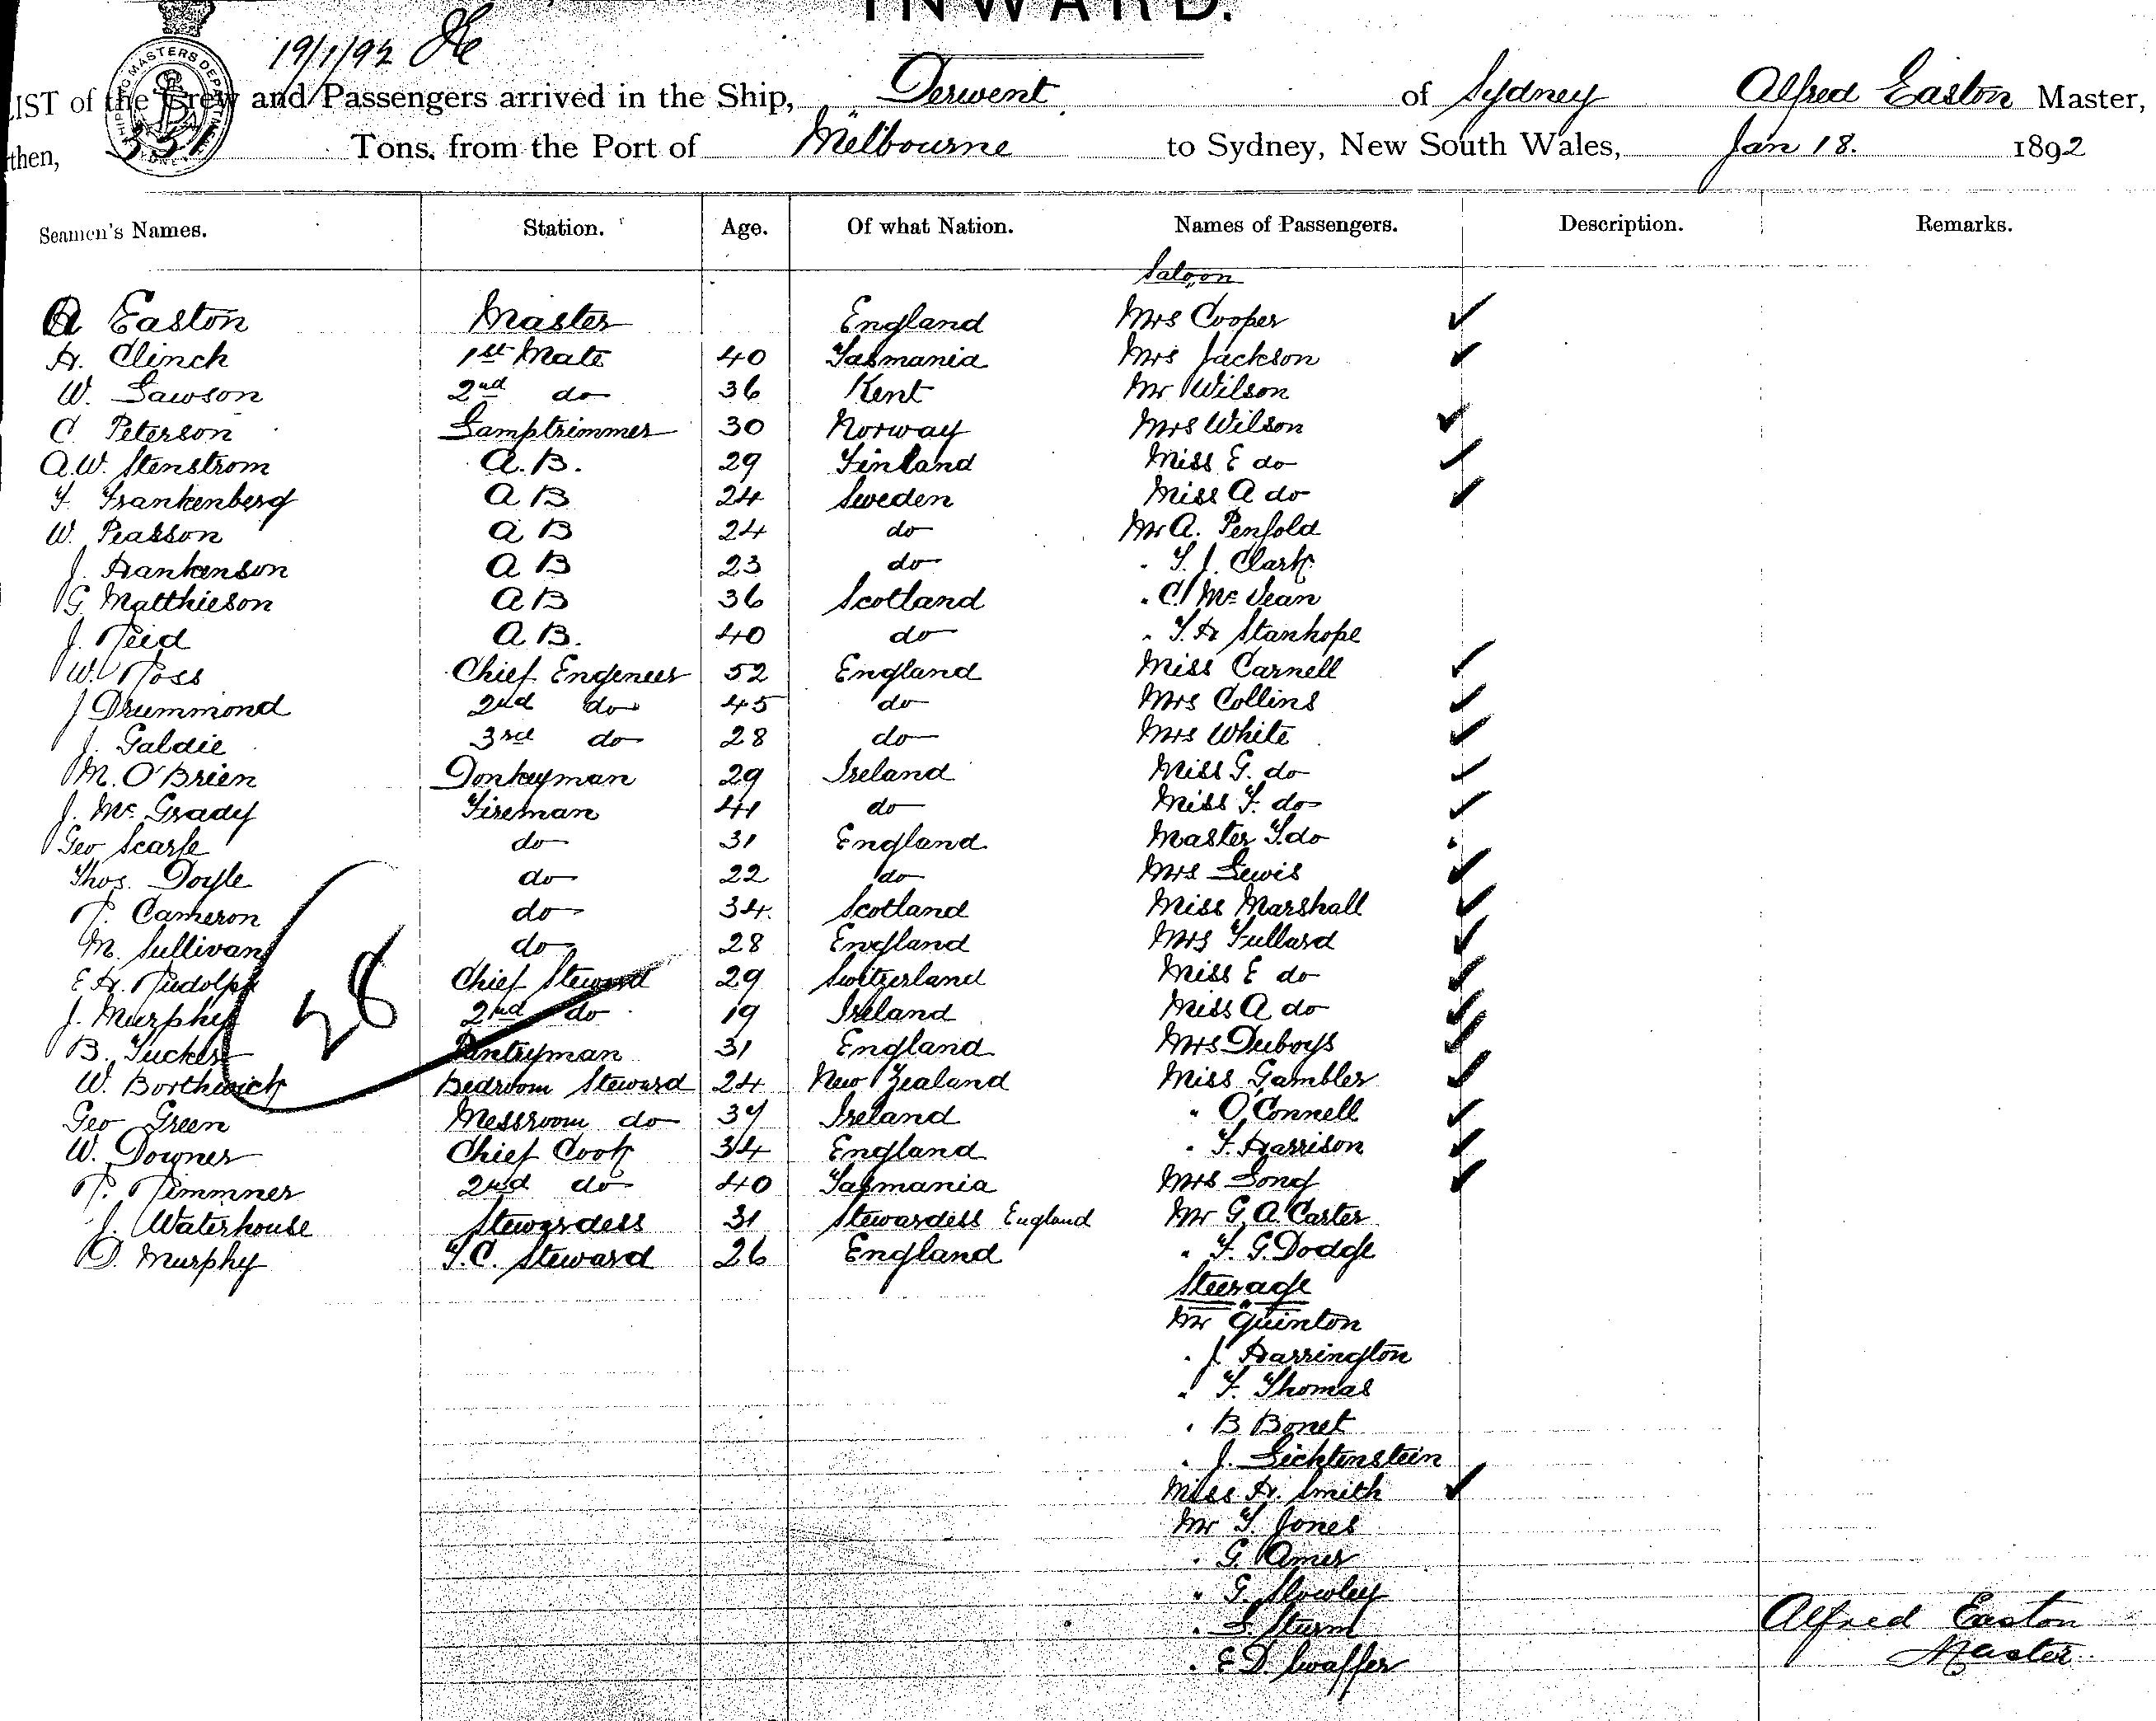 INWARD.
19/1/92
SHIPPING MASTERS DEPARTMENT SYDNEY
LIST of the Crew and Passengers arrived in the Ship, Derwent of Sydney Alfred Easton Master,
then, 351 Tons, from the Port of Melbourne to Sydney, New South Wales, Jan 18. 1892
Seamen's Names. Station. Age. Of what Nation. Names of Passengers. Description. Remarks.
Saloon
A Easton Master England Mrs Cooper ✓
H. Clinch 1st Mate 40 Tasmania Mrs Jackson ✓
W. Lawson 2nd do 36 Kent Mr Wilson
C Peterson Lamptrimmer 30 Norway Mrs Wilson ✓
A.W. Stenstrom A.B. 29 Finland Miss E do ✓
F. Frankenberg A B 24 Sweden Miss A do ✓
W. Pearson A B 24 do Mr A. Penfold
J. Hankinson A B 23 do " T. J. Clark
G. Matthieson A B 36 Scotland " C. Mc Vean
J. Reid A B. 40 do " T. H Stanhope
W. Ross Chief Engeneer 52 England Miss Carnell ✓
J Drummond 2nd do 45 do Mrs Collins ✓
J. Galdie 3rd do 28 do Mrs White ✓
M. O'Brien Donkeyman 29 Ireland Miss G. do ✓
J. Mc Grady Fireman 41 do Miss F. do ✓
Geo Scarfe do 31 England Master T. do
Thos. Doyle do 22 do Mrs Lewis ✓
R. Cameron do 34 Scotland Miss Marshall ✓
M. Sullivan do 28 England Mrs Fullard ✓
E H. Rudolph Chief Steward 29 Switzerland Miss E do ✓
J. Murphy 2nd do 19 Ireland Miss A do ✓
28
B. Tucker Pantryman 31 England Mrs Duboys ✓
W. Borthwick Bedroom Steward 24 New Zealand Miss Gambler ✓
Geo Green Messroom do 37 Ireland " O'Connell ✓
W. Downer Chief Cook 34 England " F. Harrison ✓
R. Rimmner 2nd do 40 Tasmania Mrs Long ✓
J. Waterhouse Stewardess 31 Stewardess England Mr G. A. Carter
D. Murphy F.C. Steward 26 England " F. G. Dodge
Steerage
Mr Quinton
" J. Harrington
" F. Thomas
" B Bonet
" J. Lichtenstein
Miss H. Smith ✓
Mr T. Jones
" G. Amer
" G. Slowley
" L. Sturm
" E D. Swaffer
Alfred Easton
Master